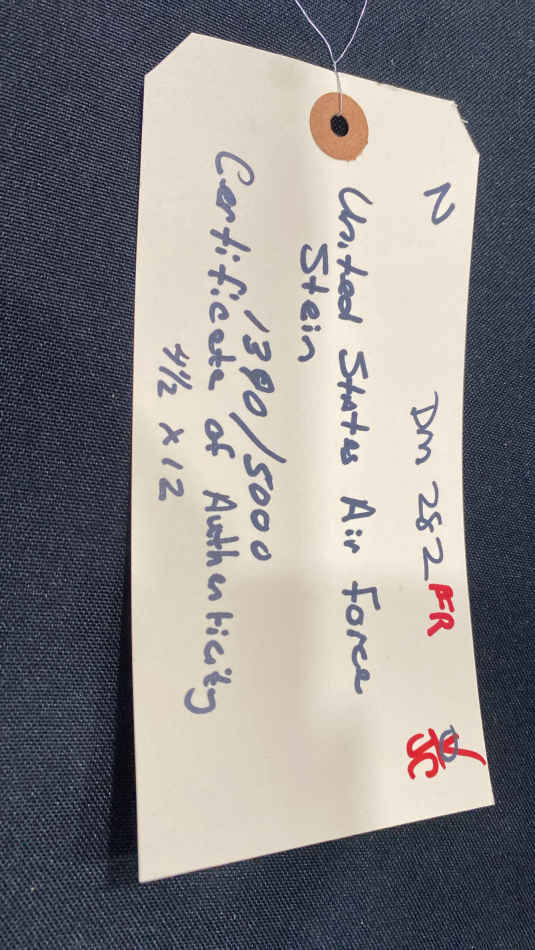 N DM 282 FR JC
United States Air Force
Stein
1390/5000
Certificate of Authenticity
4½ x 12